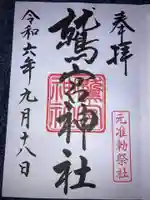 奉拝
元准勅祭社
鷲宮神社
令和六年九月十八日